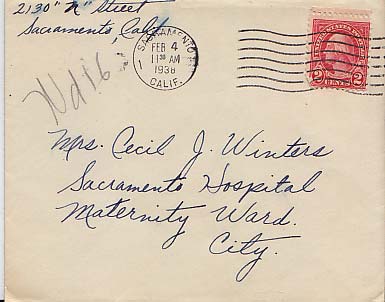 2130 "N" Street
Sacramento, Calif.
SACRAMENTO
FEB 4
11 30 AM
1938
CALIF.
UNITED STATES POSTAGE
2 CENTS 2
Mrs. Cecil J. Winters
Sacramento Hospital
Maternity Ward.
City.